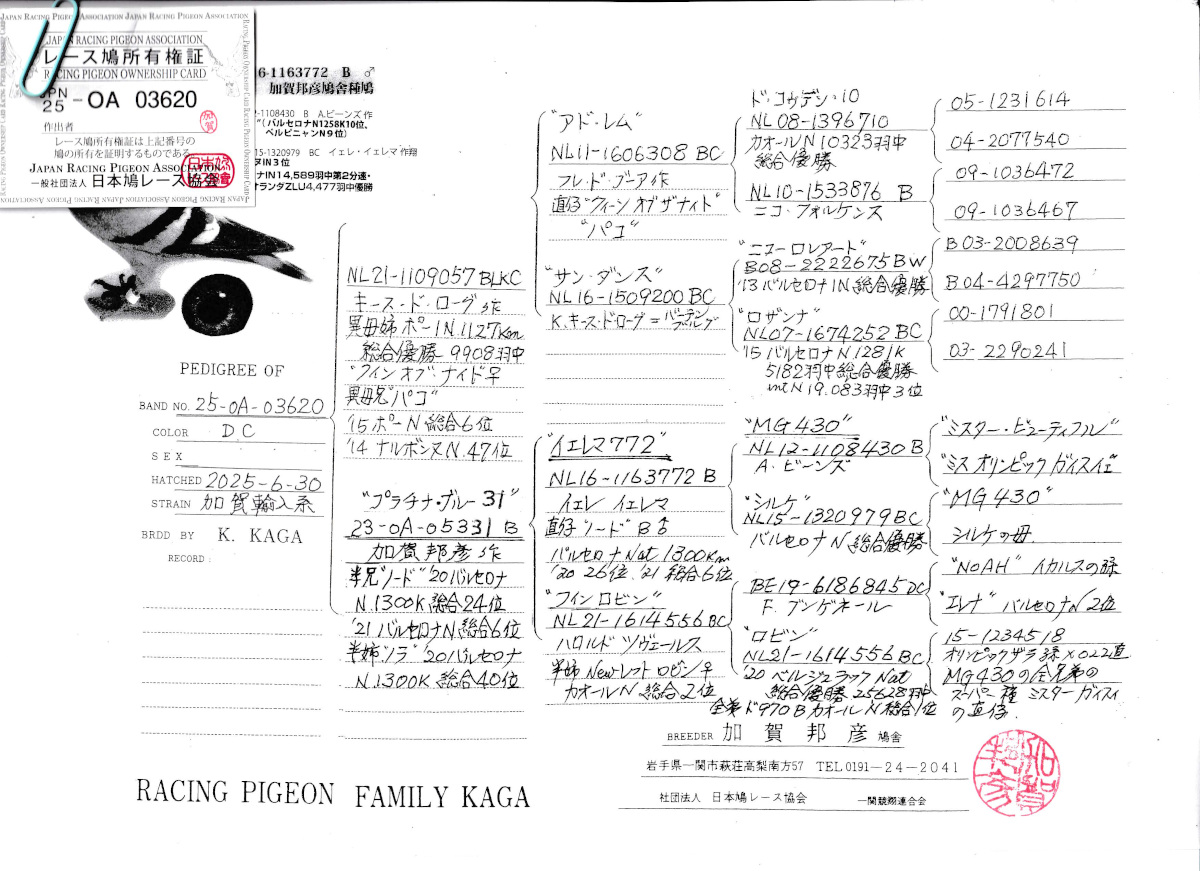 JAPAN RACING PIGEON ASSOCIATION JAPAN RACING PIGEON ASSOCIATION
JAPAN RACING PIGEON ASSOCIATION
レース鳩所有権証
RACING PIGEON OWNERSHIP CARD
JPN
25 - OA 03620
作出者
加賀
レース鳩所有権証は上記番号の
鳩の所有を証明するものである
JAPAN RACING PIGEON ASSOCIATION
一般社団法人 日本鳩レース協会
6-1163772 B ♂
加賀邦彦鳩舎種鳩
-1108430 B A.ビーンズ作
"(バルセロナN1258K10位、
ペルピニャンN9位)
15-1320979 BC イェレ・イェレマ作翔
ヌIN3位
ナIN14,589羽中第2分速・
オランダZLU4,477羽中優勝
PEDIGREE OF
BAND NO. 25-OA-03620
COLOR DC
SEX
HATCHED 2025-6-30
STRAIN 加賀輸入系
BRDD BY K. KAGA
RECORD:
NL21-1109057 BLKC
キース・ド・ローグ作
異母姉 ポーIN.1127Km
総合優勝 9908羽中
"クイン オブ ナイド♀
異母兄"パコ"
'15 ポーN 総合6位
'14 ナルボンヌN.47位
"プラチナ・ブルー31"
23-OA-05331 B
加賀邦彦作
半兄"ソード"'20バルセロナ
N.1300K 総合24位
'21バルセロナN 総合6位
半姉"ソラ"'20バルセロナ
N.1300K 総合40位
"アド・レム"
NL11-1606308 BC
フレ・ド・ブーア作
直仔"クィーン オブ ザナイト"
"パコ"
"サン・ダンス"
NL16-1509200 BC
K.キース・ド・ローグ=
"イエレマ772"
NL16-1163772 B
イェレ イェレマ
直仔"ソード"B♂
バルセロナNat 1300Km
'20 26位 '21 総合6位
"フイン ロビン"
NL21-1614556 BC
ハロルド ツヴェールス
半姉 Newレフト ロビン♀
カオールN 総合2位
ド・コウデン・10
NL08-1396710
カオールN10323羽中
総合優勝
NL10-1533876 B
ニコ・フォルケンス
"ニューロレアード"
B08-2222675 BW
'13バルセロナIN総合優勝
"ロザンナ"
NL07-1674252 BC
'15バルセロナN1281K
5182羽中総合優勝
intN19.083羽中3位
"MG430"
NL12-1108430 B
A.ビーンズ
"シルケ"
NL15-1320979 BC
バルセロナN 総合優勝
BE19-6186845 DC
F.ブンゲネール
"ロビン"
NL21-1614556 BC
'20 ベルジュラックNat
総合優勝 25628羽中
全弟ド970Bカオール N 総合1位
05-1231614
04-2077540
09-1036472
09-1036467
B03-2008639
B04-4297750
00-1791801
03-2290241
"ミスター・ビューティフル"
"ミス オリンピック ガイスイエ"
"MG430"
シルケの母
"NOAH" イカルスの孫
"エレナ" バルセロナN2位
15-1234518
オリンピックザラ孫×022直
MG430の全兄弟の
スーパー種 ミスターガイスイ
の直仔.
BREEDER 加賀邦彦 鳩舎
岩手県一関市萩荘高梨南方57 TEL0191-24-2041
社団法人 日本鳩レース協会 一関競翔連合会
RACING PIGEON FAMILY KAGA